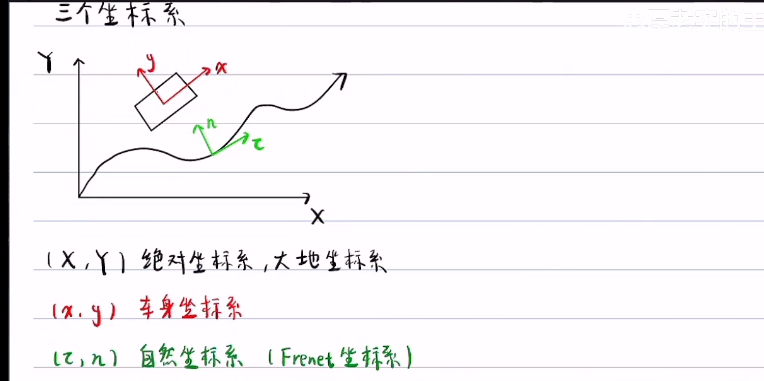 三个坐标系
Y
y
x
n
τ
X
(X,Y) 绝对坐标系,大地坐标系
(x,y) 车身坐标系
(τ,n) 自然坐标系 (Frenet坐标系)